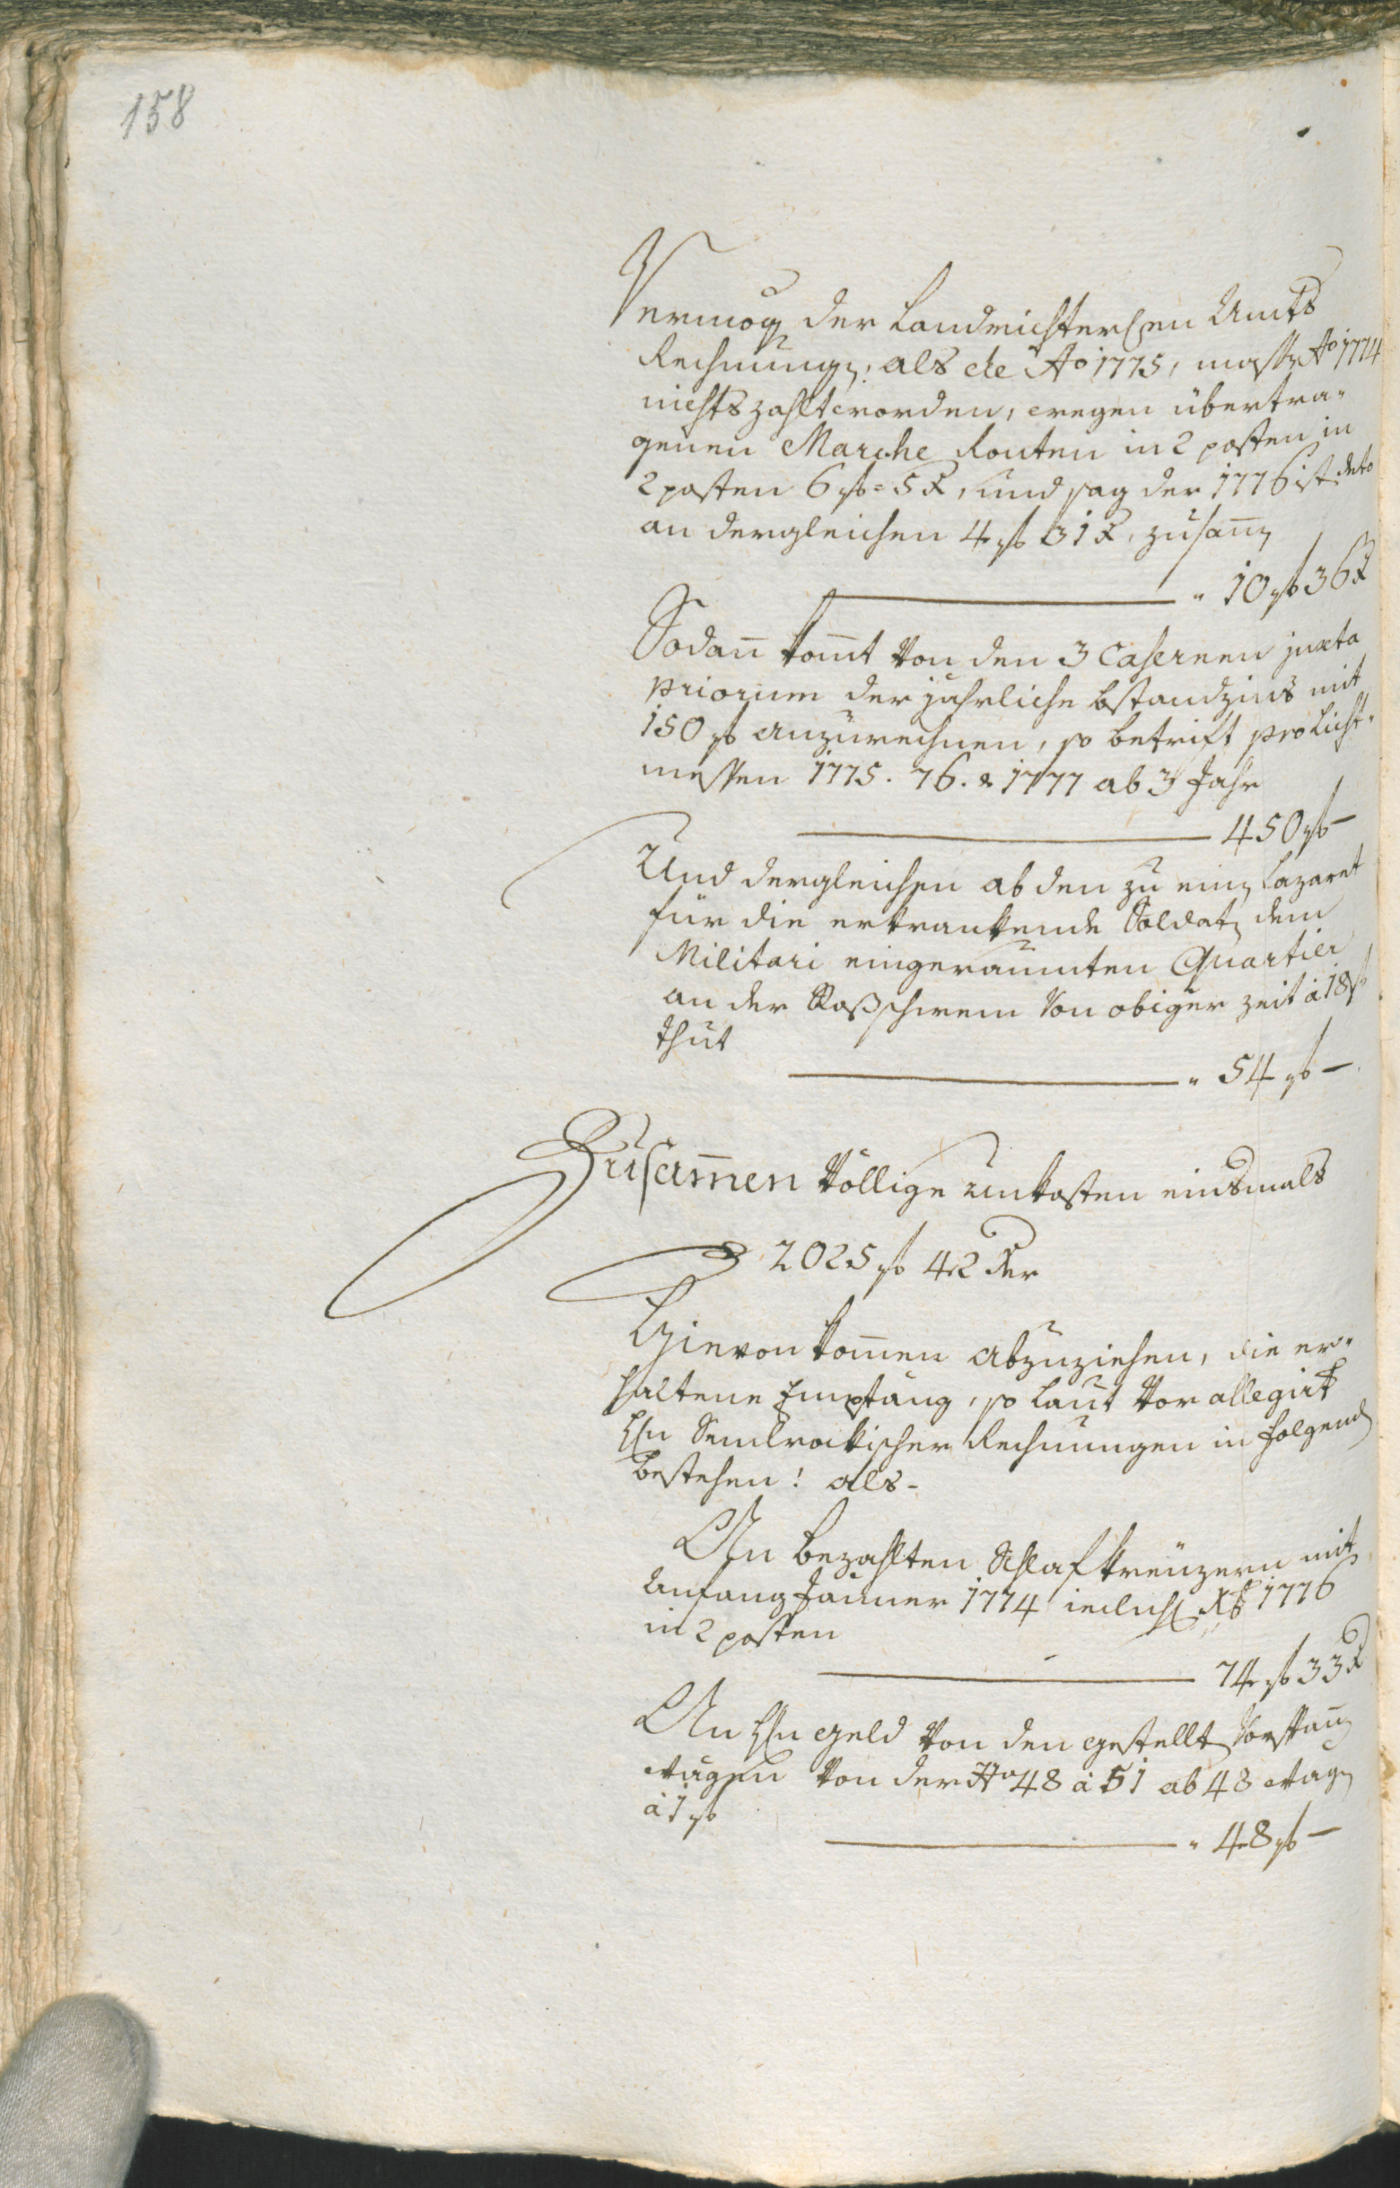 158
Vermög der Landrichterlichen Amts
Rechnung: als de Ao 1775, mass Ao 1774
nichts zahlt worden, wegen übertra-
genen Marche Routen in 2 posten in
2 posten 6 f = 5 x, und sag der 1776ist. deto
an dergleichen 4 f 31 x, zusam̄
10 f 36 x
Sodan̄ kom̄t von den 3 Casernen juxta
priorium der jährliche bstandzins mit
150 f anzurechnen, so betrift pro Licht-
messen 1775. 76. & 1777 ab 3 Jahr
450 f —
Und dergleichen ab den zu ein Lazaret
für die erkrankende Soldat dem
Militari eingeraumten Quartier
an der Roßschwem von obiger zeit à 18 f
thut
54 f —
Zusam̄en völlige unkosten einsmals
2025 f 42 xer
Hievon kom̄en abzuziehen, die er-
haltene Empfäng, so laut vor allegirt
Hn Rechnungen in folgend
bestehen! als-
An bezahlten Schlafkreuzern mit
Anfang Jänner 1774 xb 1776
in 2 posten
74 f 33 x
An Hn geld von den gestellt Vorspan̄
wägen von der No 48 à 51 ab 48 wäg
à 1 f
48 f —